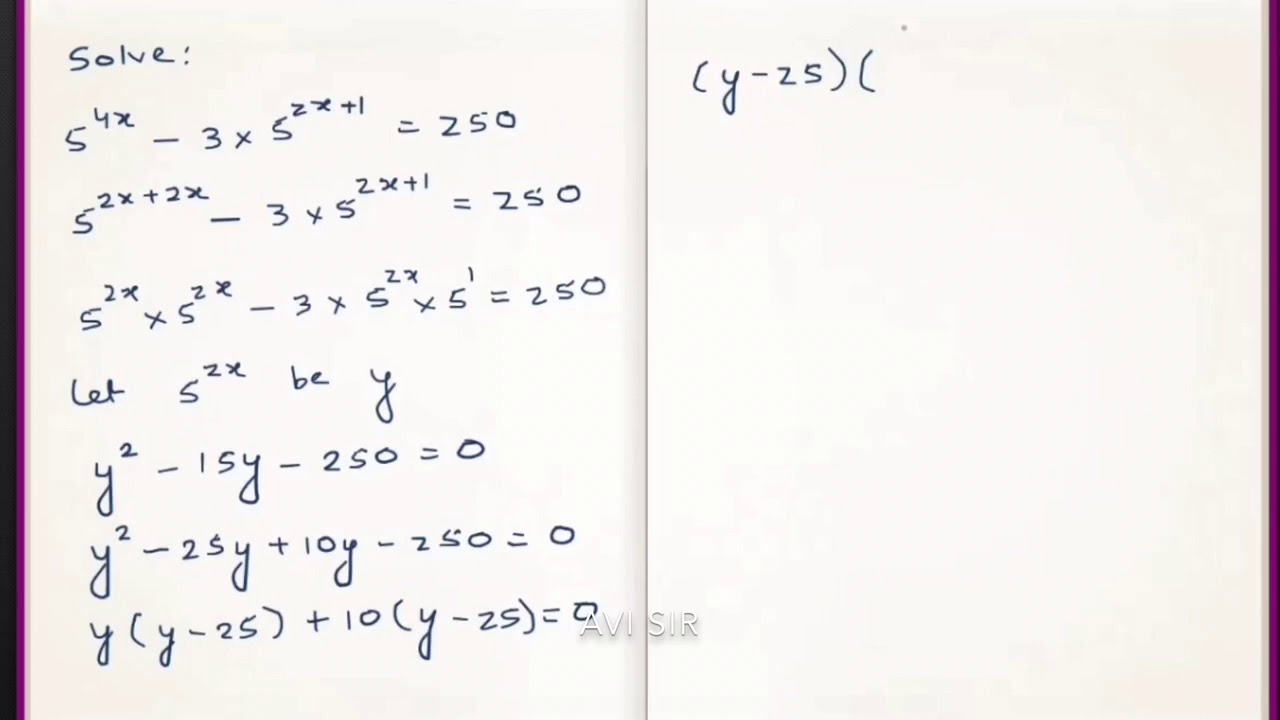 Solve:
5^{4x} - 3 × 5^{2x+1} = 250
5^{2x+2x} - 3 × 5^{2x+1} = 250
5^{2x} × 5^{2x} - 3 × 5^{2x} × 5^{1} = 250
Let 5^{2x} be y
y^{2} - 15y - 250 = 0
y^{2} - 25y + 10y - 250 = 0
y(y-25) + 10(y-25) = 0
(y-25)(
AVI SIR